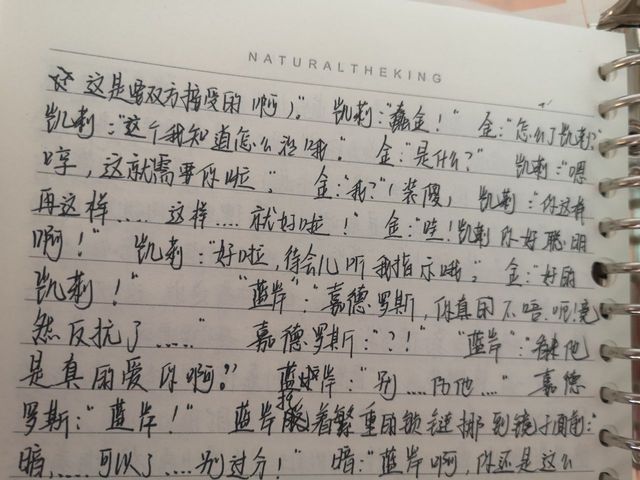 NATURALTHEKING
这是要双方接受的啊)。" 凯莉:"蠢金!" 金:"怎么了凯莉?"
凯莉:"这个我知道怎么治哦。" 金:"是什么?" 凯莉:"嗯
哼,这就需要你啦。" 金:"我?"(装傻) 凯莉:"你这样
再这样……这样……就好啦!" 金:"哇!凯莉你好聪明
啊!" 凯莉:"好啦,待会儿听我指示哦。" 金:"好的
凯莉!" "蓝岸":"嘉德罗斯,你真的不唔.呃!竟
然反抗了……" 嘉德罗斯:"?!" "蓝岸":他
是真的爱你啊?" 蓝岸:"别……伤他…" 嘉德
罗斯:"蓝岸!" 蓝岸拖着繁重的锁链挪到镜子面前:"
暗,……可以了……别过分!" 暗:"蓝岸啊,你还是这么